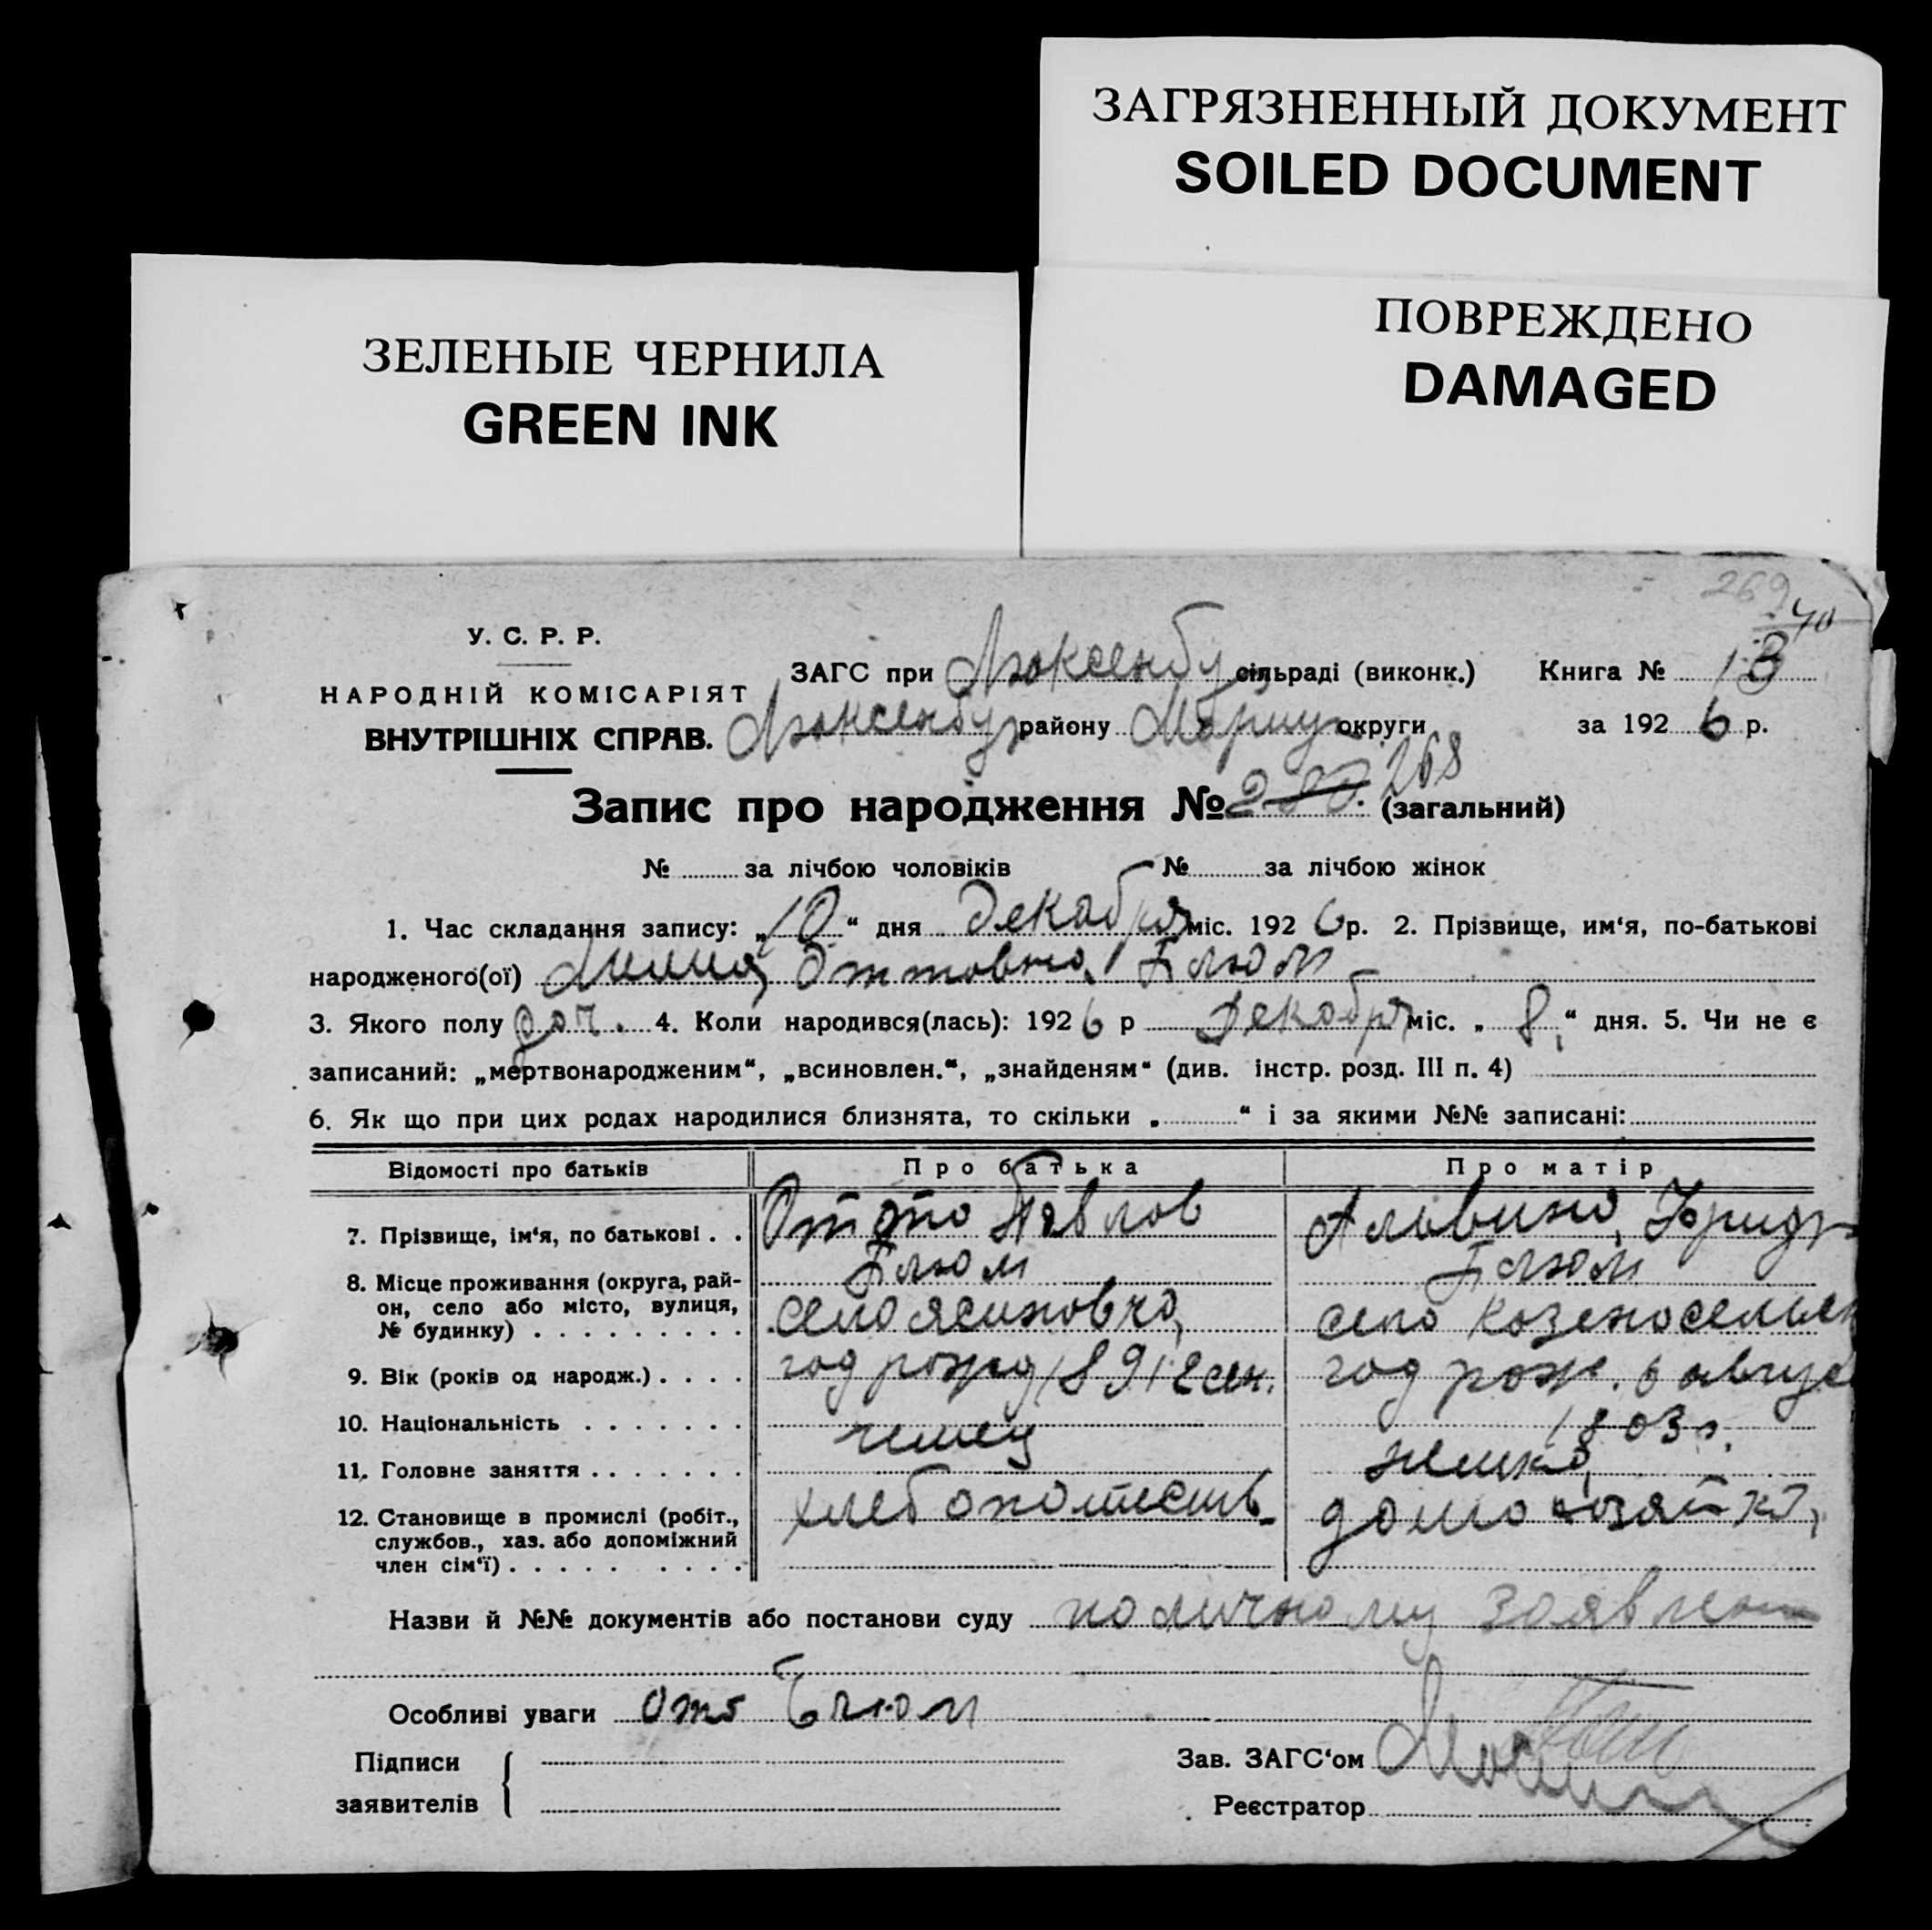 ЗАГРЯЗНЕННЫЙ ДОКУМЕНТ
SOILED DOCUMENT
ЗЕЛЕНЫЕ ЧЕРНИЛА
GREEN INK
ПОВРЕЖДЕНО
DAMAGED
269
У. С. Р. Р.
НАРОДНІЙ КОМІСАРІЯТ
ВНУТРІШНІХ СПРАВ.
ЗАГС при Люксенбу сільраді (виконк.) Книга № 13
Люксенбу району Мариу округи за 1926 р.
Запис про народження № 268 (загальний)
№ за лічбою чоловіків № за лічбою жінок
1. Час складання запису: „10“ дня Декабря міс. 1926 р. 2. Прізвище, им‘я, по-батькові
народженого(ої) Лилия Оттовна Блюм
3. Якого полу доч. 4. Коли народився(лась): 1926 р Декабря міс. „8“ дня. 5. Чи не є
записаний: „мертвонародженим“, „всиновлен.“, „знайденям“ (див. інстр. розд. III п. 4)
6. Як що при цих родах народилися близнята, то скільки „ “ і за якими №№ записані:
Відомості про батьків Про батька Про матір
7. Прізвище, ім‘я, по батькові . . Отто Павлов Альвина Фридр
Блюм Блюм
8. Місце проживання (округа, рай-
он, село або місто, вулиця,
№ будинку) село Ясиновка село
9. Вік (років од народж.) год рожд 1891 2 сен. год рож. 6 август
1803 г.
10. Національність немец немка
11. Головне заняття
12. Становище в промислі (робіт.,
службов., хаз. або допоміжний
член сім‘ї) домохозяйка
Назви й №№ документів або постанови суду по личному заявлен
Особливі уваги Ото Блюм
Підписи
заявителів
Зав. ЗАГС‘ом
Реєстратор